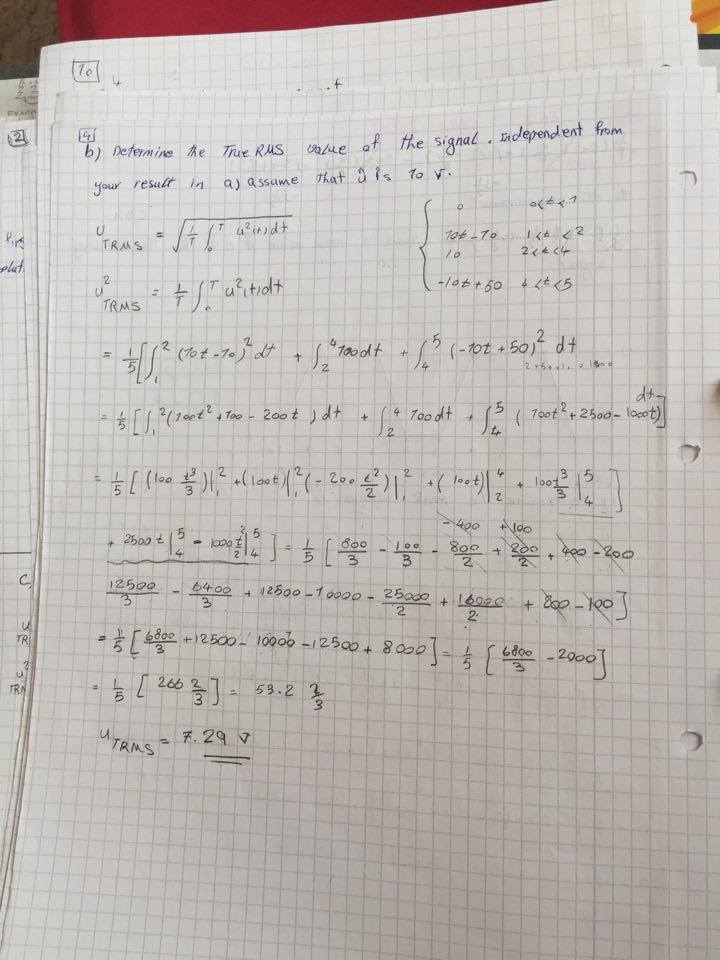 10
4
2
4
b) Determine the True RMS value of the signal. Independent from
your result in a) assume that û is 10 V.
u TRMS = √(1/T ∫₀ᵀ u²(t)dt)
0 0<t<1
10t-10 1<t<2
10 2<t<4
-10t+50 4<t<5
u² TRMS = 1/T ∫₀ᵀ u²(t)dt
= 1/5 [∫₁² (10t-10)² dt + ∫₂⁴ 100dt + ∫₄⁵ (-10t+50)² dt
= 1/5 [∫₁² (100t²+100-200t) dt + ∫₂⁴ 100dt + ∫₄⁵ (100t²+2500-1000t) dt]
= 1/5 [(100 t³/3)|₁² + (100t)|₁² (-200 t²/2)|₁² + (100t)|₂⁴ + 100t³/3|₄⁵]
-400 +100
+ 2500t|₄⁵ - 1000t²/2|₄⁵] = 1/5 [800/3 - 100/3 - 800/2 + 200/2 + 400 - 200
12500/3 - 6400/3 + 12500 - 10000 - 25000/2 + 16000/2 + 200 - 100]
= 1/5 [6800/3 + 12500 - 10000 - 12500 + 8000] = 1/5 [6800/3 - 2000]
= 1/5 [266 2/3] = 53.2 2/3
u TRMS = 7.29 V
C,
u
TR
u²
TRM